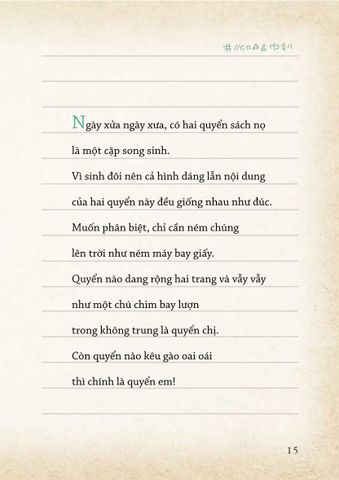 Ngày xửa ngày xưa, có hai quyển sách nọ
là một cặp song sinh.
Vì sinh đôi nên cả hình dáng lẫn nội dung
của hai quyển này đều giống nhau như đúc.
Muốn phân biệt, chỉ cần ném chúng
lên trời như ném máy bay giấy.
Quyển nào dang rộng hai trang và vẫy vẫy
như một chú chim bay lượn
trong không trung là quyển chị.
Còn quyển nào kêu gào oai oái
thì chính là quyển em!
15